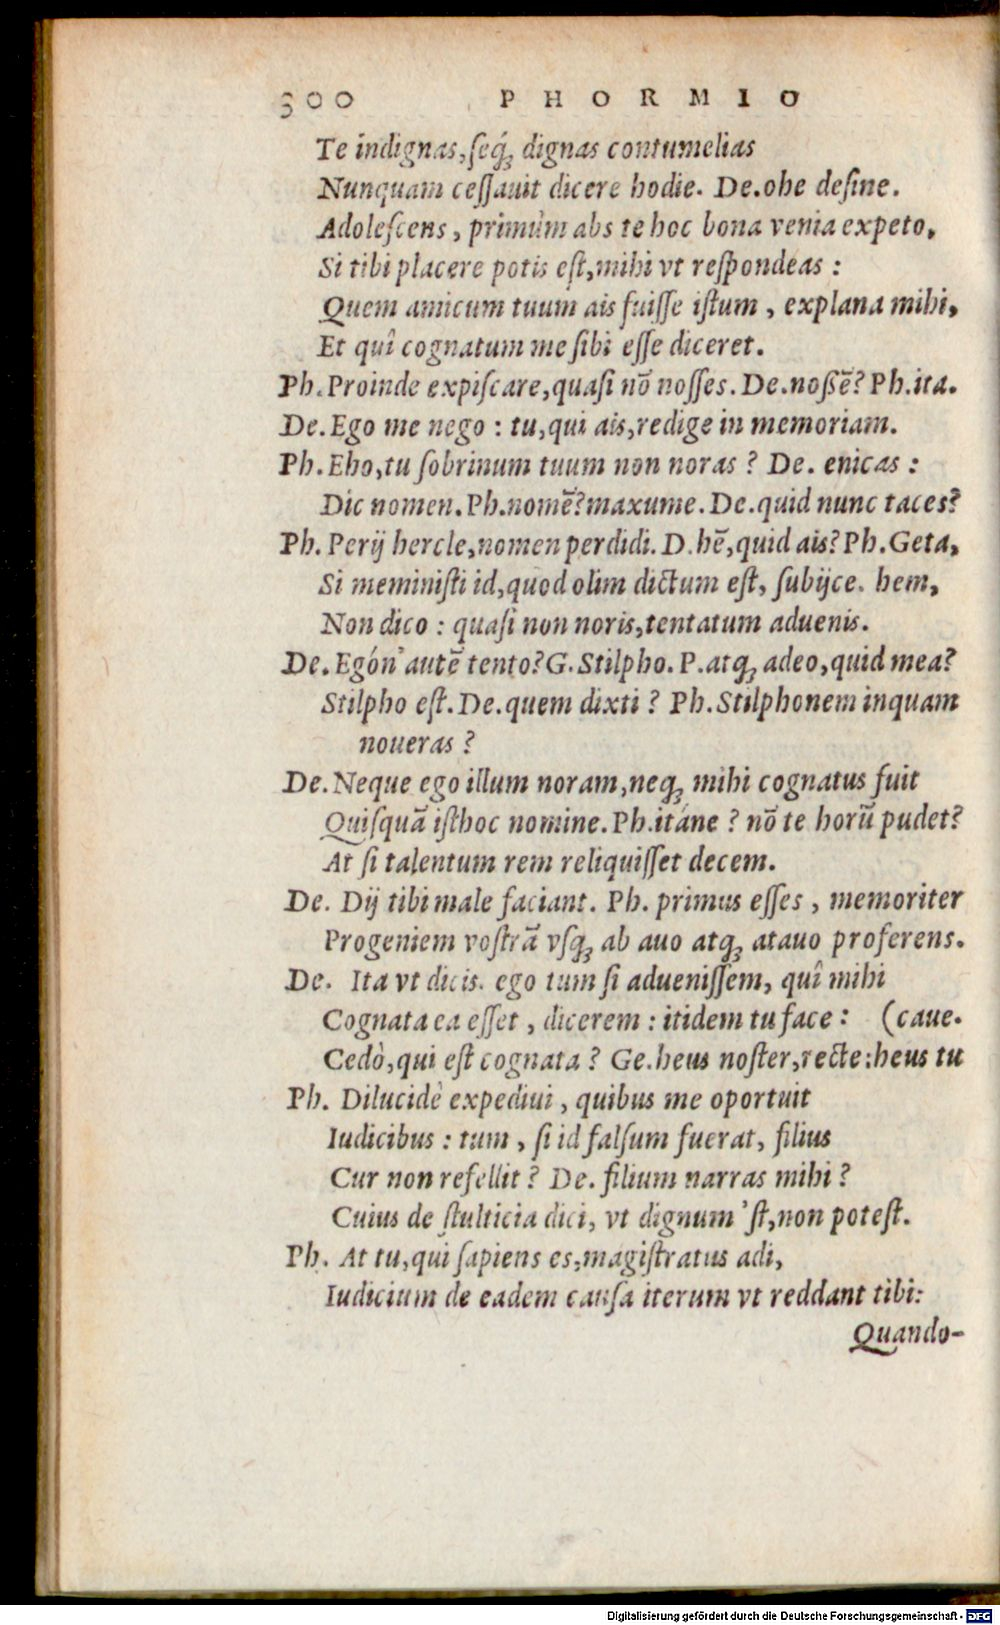 300 PHORMIO
Te indignas, ſeq́ꝫ dignas contumelias
Nunquam ceſſauit dicere hodie. De. ohe deſine.
Adoleſcens, primùm abs te hoc bona venia expeto,
Si tibi placere potis eſt, mihi vt reſpondeas:
Quem amicum tuum ais fuiſſe iſtum, explana mihi,
Et quî cognatum me ſibi eſſe diceret.
Ph. Proinde expiſcare, quaſi nō noſſes. De. noßē? Ph. ita.
De. Ego me nego: tu, qui ais, redige in memoriam.
Ph. Eho, tu ſobrinum tuum non noras? De. enicas:
Dic nomen. Ph. nomē? maxume. De. quid nunc taces?
Ph. Perij hercle, nomen perdidi. D. hē, quid ais? Ph. Geta,
Si meminiſti id, quod olim dictum eſt, ſubijce. hem,
Non dico: quaſi non noris, tentatum aduenis.
De. Egón' autē tento? G. Stilpho. P. atqꝫ adeo, quid mea?
Stilpho eſt. De. quem dixti? Ph. Stilphonem inquam
noueras?
De. Neque ego illum noram, neqꝫ mihi cognatus fuit
Quiſquā iſthoc nomine. Ph. itáne? nō te horū pudet?
At ſi talentum rem reliquiſſet decem.
De. Dij tibi male faciant. Ph. primus eſſes, memoriter
Progeniem voſtrā vſqꝫ ab auo atqꝫ atauo proferens.
De. Ita vt dicis. ego tum ſi adueniſſem, quî mihi
Cognata ea eſſet, dicerem: itidem tu face: (caue.
Cedò, qui eſt cognata? Ge. heus noſter, recte: heus tu
Ph. Dilucidè expediui, quibus me oportuit
Iudicibus: tum, ſi id falſum fuerat, filius
Cur non refellit? De. filium narras mihi?
Cuius de ſtulticia dici, vt dignum 'ſt, non poteſt.
Ph. At tu, qui ſapiens es, magiſtratus adi,
Iudicium de eadem cauſa iterum vt reddant tibi:
Quando-
Digitalisierung gefördert durch die Deutsche Forschungsgemeinschaft - DFG